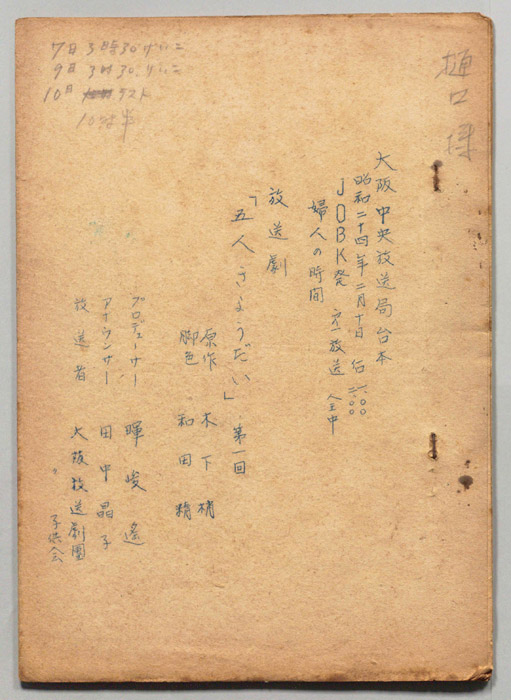 樋口様
7日 3時30.けいこ
9日 3時30.けいこ
10日 ラスト
10時半
大阪中央放送局台本
昭和二十四年二月十日
JOBK発 第二放送 全中
婦人の時間
放送劇
「五人きょうだい」 第一回
原作 木下梢
脚色 和田精
プロデューサー 暉峻遙
アナウンサー 田中晶子
放送者 大阪放送劇團
〃 子供会